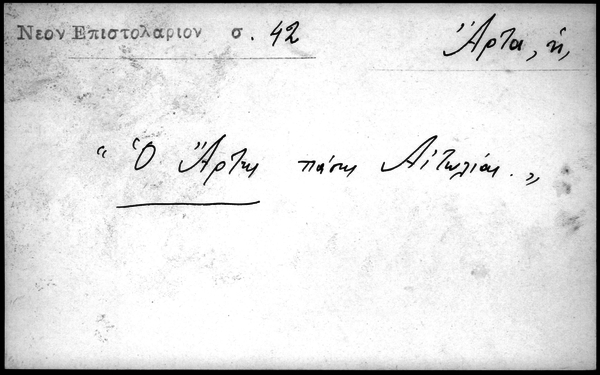 Νεον Επιστολαριον σ. 42
Ἄρτα, ἡ,
“ Ὁ Ἄρτης πάσης Αἰτωλίας. „